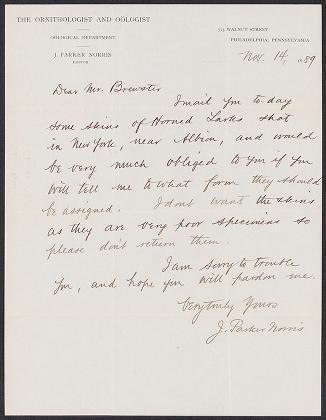 THE ORNITHOLOGIST AND OÖLOGIST.
OÖLOGICAL DEPARTMENT
J. PARKER NORRIS
EDITOR
515 WALNUT STREET
PHILADELPHIA, PENNSYLVANIA
Nov. 14, 1889
Dear Mr. Brewster
I mail you to-day
some skins of Horned Larks shot
in New York, near Albion, and would
be very much obliged to you if you
will tell me to what form they should
be assigned. I dont want the skins
as they are very poor specimens so
please don't return them.
I am sorry to trouble
you, and hope you will pardon me.
Very truly Yours
J. Parker Norris